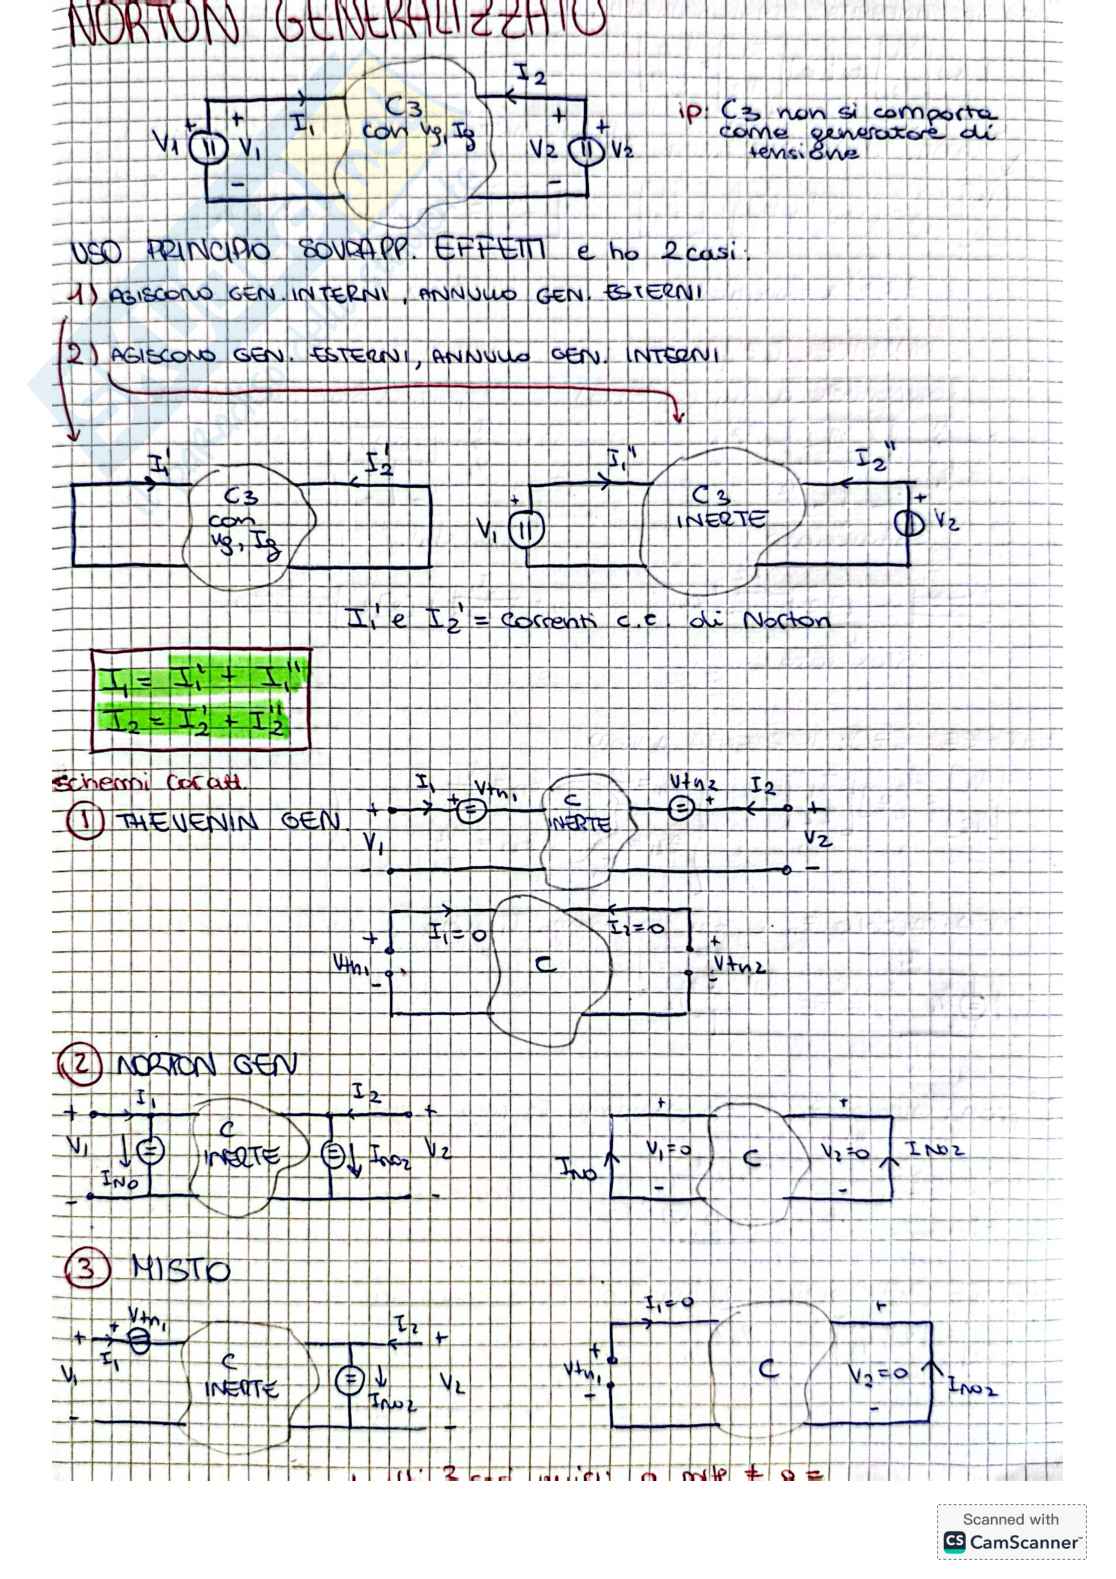 NORTON GENERALIZZATO
I2
I1
C3
con Vg, Ig
V1
+
+
V1
-
+
V2
+
V2
-
ip: C3 non si comporta
come generatore di
tensione
USO PRINCIPIO SOVRAPP. EFFETTI e ho 2 casi:
1) AGISCONO GEN. INTERNI, ANNULLO GEN. ESTERNI
2) AGISCONO GEN. ESTERNI, ANNULLO GEN. INTERNI
I1' I2' I1'' I2''
C3
con
Vg, Ig
V1 +
C3
INERTE
+ V2
I1' e I2' = correnti c.c. di Norton
I1 = I1' + I1''
I2 = I2' + I2''
schemi caratt.
1 THEVENIN GEN.
I1 Vth1 Vth2 I2
+ + C + +
INERTE
V1 V2
- -
I1=0 I2=0
+ +
Vth1 C Vth2
- -
2 NORTON GEN
I1 I2
+ C +
V1 INERTE INO2 V2
INO
- -
+ +
INO V1=0 C V2=0 INO2
- -
3 MISTO
Vth1 I2
+ + +
I1 C
V1 INERTE INO2 V2
- -
I1=0 +
+
Vth1 C V2=0 INO2
- -
Scanned with
CS CamScanner